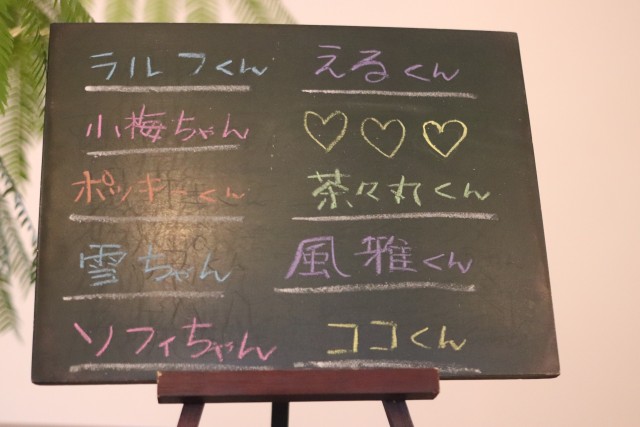 ラルフくん
小梅ちゃん
ポッキーくん
雪ちゃん
ソフィちゃん
えるくん
♡♡♡
茶々丸くん
風雅くん
ココくん